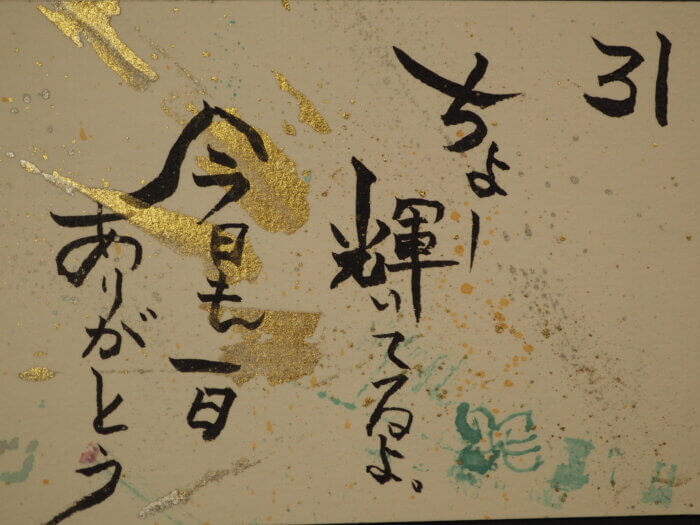 引
ちょー
輝いてるよ。
今日も一日
ありがとう